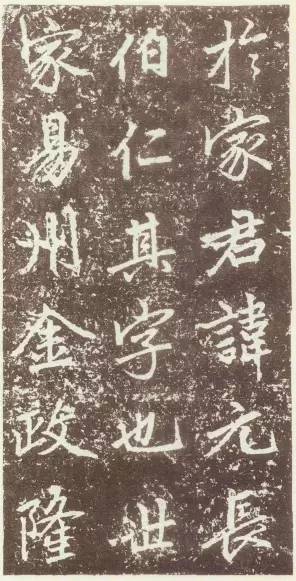 於家君諱元長
伯仁其字也世
家易州金政隆